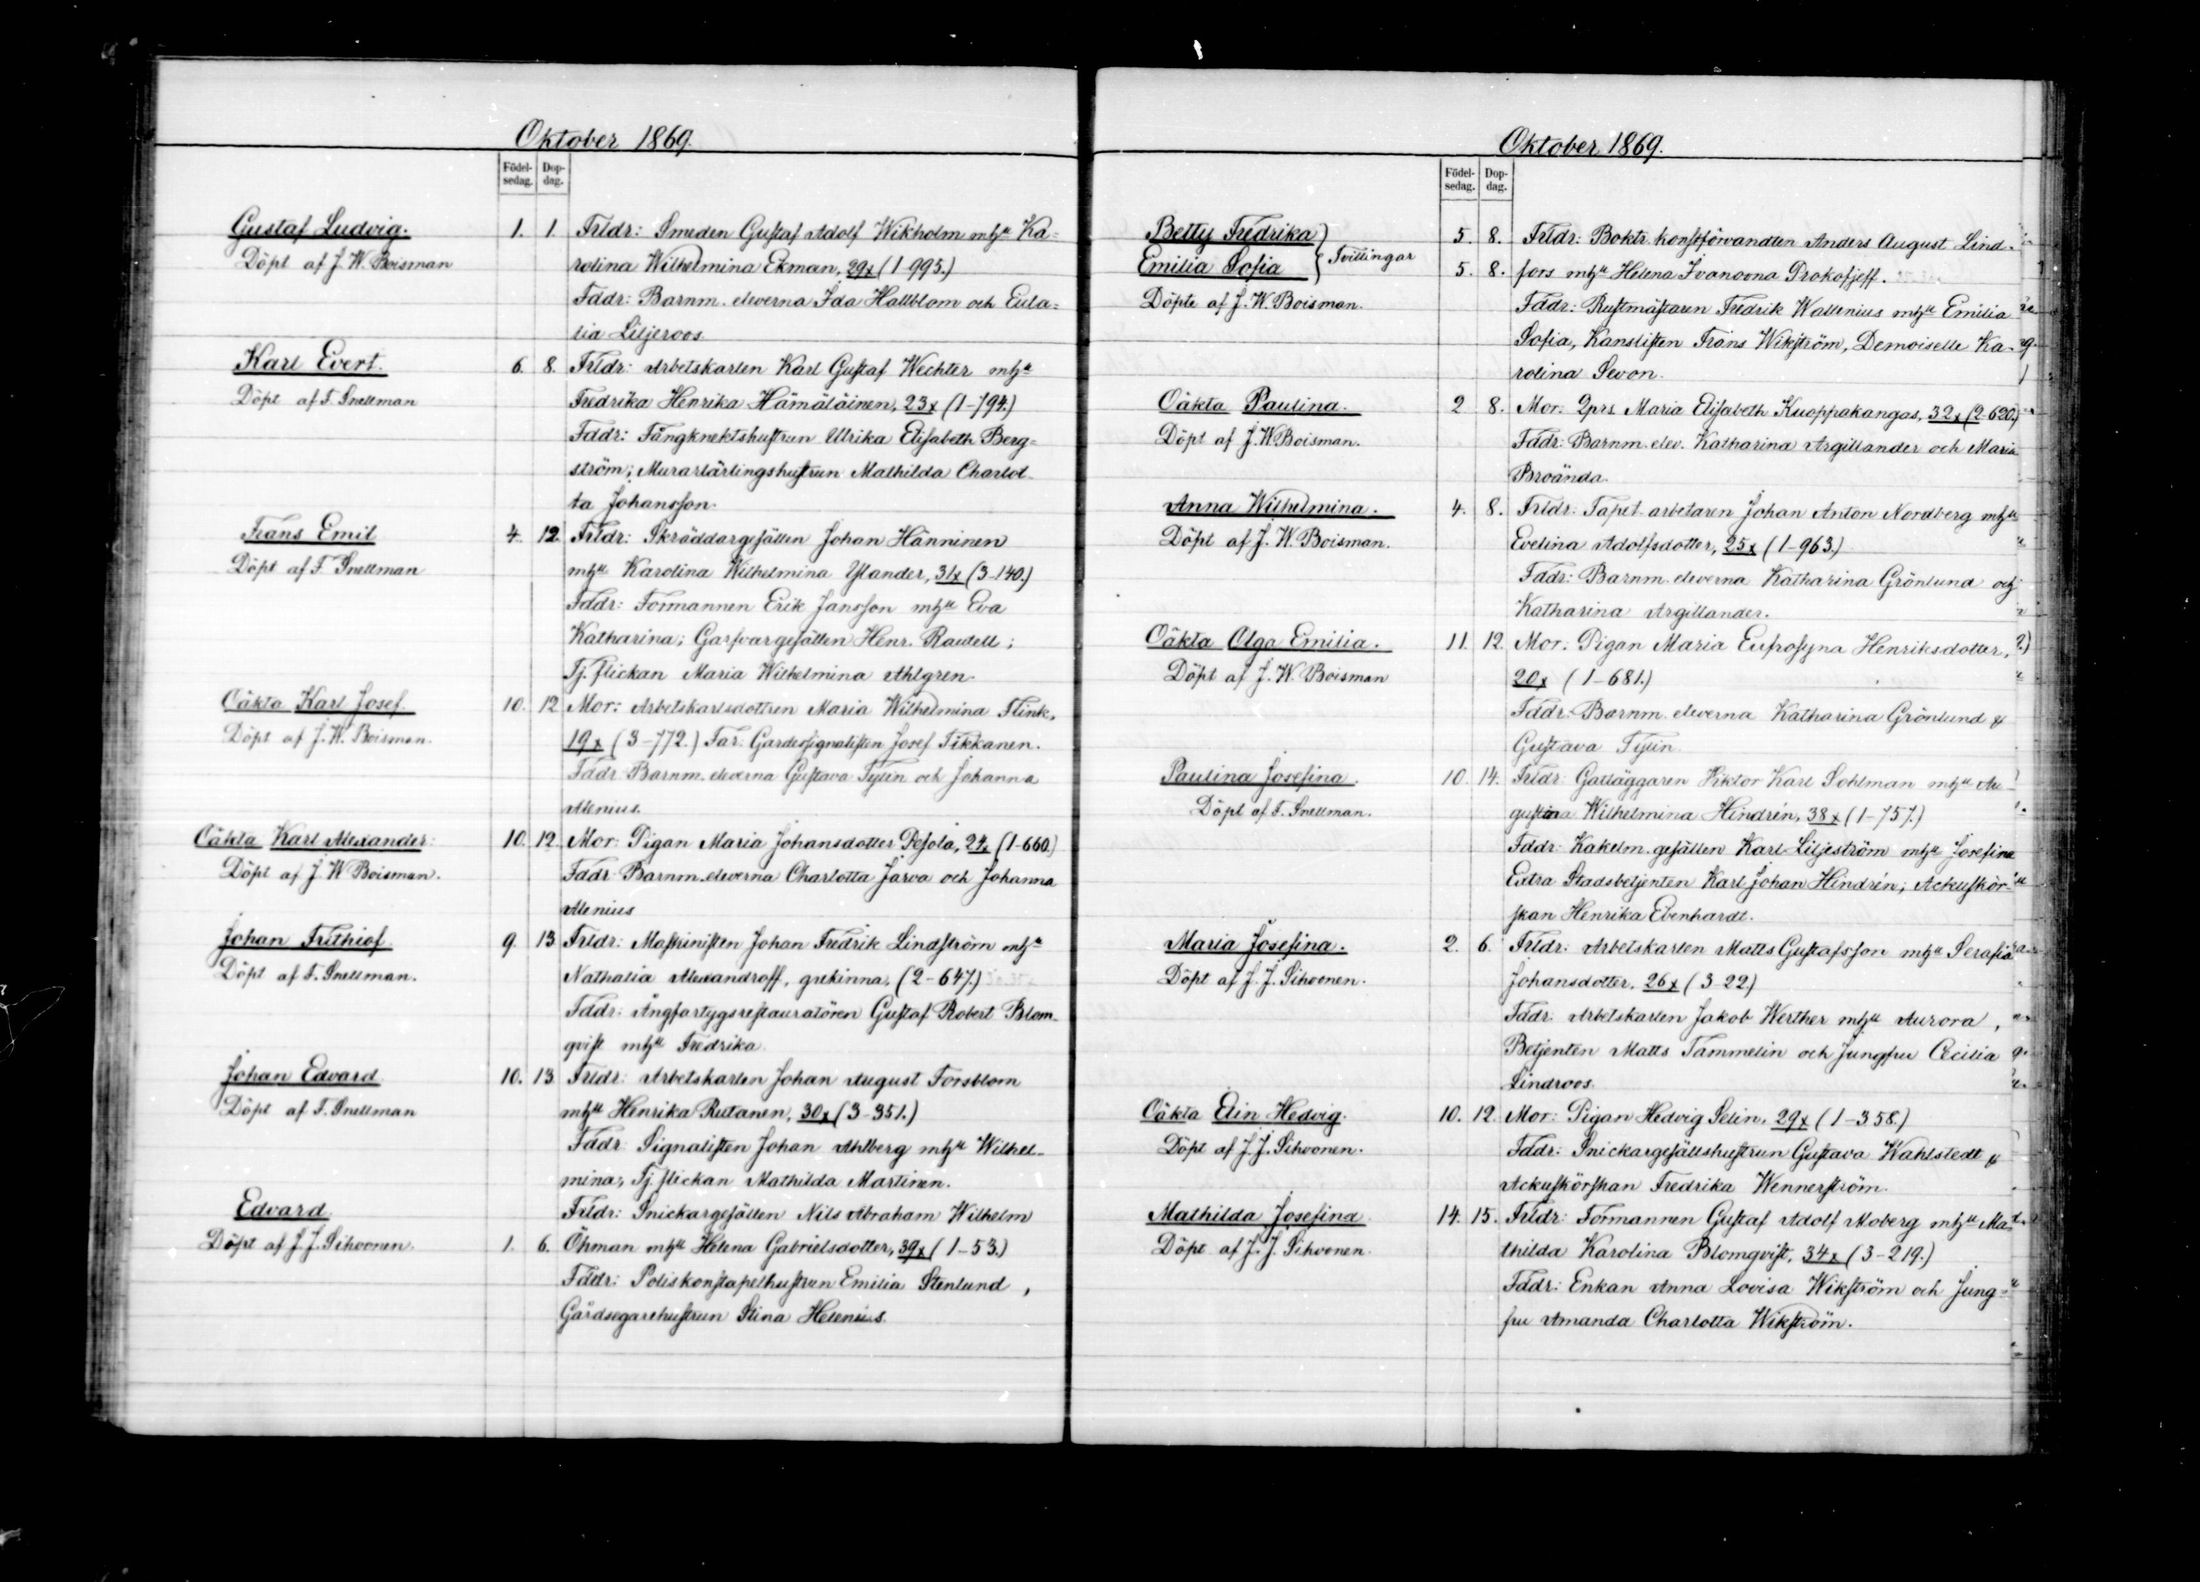 Oktober 1869.
Födel-
sedag.
Dop-
dag.
Gustaf Ludvig.
Döpt af J. W. Boisman
1. 1. Frldr: Smeden Gustaf Adolf Wikholm mhu Ka=
rolina Wilhelmina Ekman, 29x (1-995.)
Fddr: Barnm. eleverna Ida Hallblom och Eula=
lia Liljeroos.
Karl Evert.
Döpt af F. Snellman
6. 8. Frldr: Arbetskarlen Karl Gustaf Wechter mhu
Fredrika Henrika Hämäläinen, 23x (1-794.)
Fddr: Fångknektshustrun Ulrika Elisabeth Berg=
ström; Murarlärlingshustrun Mathilda Charlot-
ta Johansson.
Frans Emil
Döpt af F Snellman
4. 12. Frldr: Skräddargesällen Johan Hänninen
mhu Karolina Wilhelmina Ylander, 31x (3-140.)
Fddr: Formannen Erik Jansson mhu Eva
Katharina; Garfvargesällen Henr. Raidell;
Tj. flickan Maria Wilhelmina Ahlgren.
Oäkta Karl Josef.
Döpt af J. W. Boisman.
10. 12 Mor: Arbetskarlsdottren Maria Wilhelmina Flink,
19x (3-772.) Far: Gardessignalisten Josef Tikkanen.
Fddr: Barnm. eleverna Gustava Tylin och Johanna
Alenius.
Oäkta Karl Alexander:
Döpt af J. W Boisman.
10. 12. Mor: Pigan Maria Johansdotter Pesola, 24x (1-660.)
Fddr: Barnm. eleverna Charlotta Järva och Johanna
Alenius
Johan Frithiof
Döpt af F. Snellman.
9. 13. Frldr: Maskinisten Johan Fredrik Lindström mhu
Nathalia Alexandroff, grekinna, (2-647.)
Fddr: Ångfartygsrestauratören Gustaf Robert Blom-
qvist mhu Fredrika.
Johan Edvard
Döpt af F. Snellman
10. 13. Frldr: Arbetskarlen Johan August Forsblom
mhu Henrika Rutanen, 30x (3-351.)
Fddr: Signalisten Johan Ahlberg mhu Wilhel-
mina; Tj. flickan Mathilda Martinen.
Edvard
Döpt af J. J. Sihvonen.
Frldr: Snickargesällen Nils Abraham Wilhelm
1. 6. Öhman mhu Helena Gabrielsdotter, 39x (1-53.)
Fddr: Poliskonstapelhustrun Emilia Stenlund,
Gårdsegarehustrun Stina Helenius.
Oktober 1869.
Födel-
sedag.
Dop-
dag.
Betty Fredrika
Emilia Sofia
Tvillingar
Döpte af J. W. Boisman.
5. 8. Frldr: Boktr. konstförvandten Anders August Lind-
5. 8. fors mhu Helena Ivanovna Prokofjeff.
Fddr: Rustmästaren Fredrik Wallenius mhu Emilia
Sofia, Kanslisten Frans Wikström, Demoiselle Ka-
rolina Sevon.
Oäkta Paulina.
Döpt af J. W. Boisman.
2 8. Mor: Qprs Maria Elisabeth Kuoppakangas, 32x (2-620.)
Fddr: Barnm. elev. Katharina Argillander och Maria
Broända.
Anna Wilhelmina.
Döpt af J. W. Boisman.
4. 8. Frldr: Tapet-arbetaren Johan Anton Nordberg mhu
Evelina Adolfsdotter, 25x (1-963.)
Fddr: Barnm. eleverna Katharina Grönlund och
Katharina Argillander.
Oäkta Olga Emilia.
Döpt af J. W. Boisman
11. 12. Mor: Pigan Maria Eufrosyna Henriksdotter,
20x (1-681.)
Fddr: Barnm. eleverna Katharina Grönlund &
Gustava Tylin.
Paulina Josefina.
Döpt af F. Snellman.
10. 14. Frldr: Gatläggaren Viktor Karl Sohlman mhu Au-
gusta Wilhelmina Hindrén, 38x (1-757.)
Fddr: Kakelm. gesällen Karl Liljeström mhu Josefina
Extra Stadsbetjenten Karl Johan Hindrén; Ackuskör-
skan Henrika Ebenhardt.
Maria Josefina.
Döpt af J. J. Sihvonen.
2. 6. Frldr: Arbetskarlen Matts Gustafsson mhu Serafia
Johansdotter, 26x (3-22)
Fddr. Arbetskarlen Jakob Werther mhu Aurora,
Betjenten Matts Tammelin och Jungfru Cecilia
Lindroos.
Oäkta Elin Hedvig.
Döpt af J. J. Sihvonen.
10. 12. Mor: Pigan Hedvig Selin, 29x (1-358.)
Fddr: Snickargesällshustrun Gustava Wahlstedt &
Ackuskörskan Fredrika Wennerström.
Mathilda Josefina
Döpt af J. J. Sihvonen.
14. 15. Frldr: Formannen Gustaf Adolf Moberg mhu Ma-
thilda Karolina Blomqvist, 34x (3-219.)
Fddr: Enkan Anna Lovisa Wikström och Jung-
fru Amanda Charlotta Wikström.